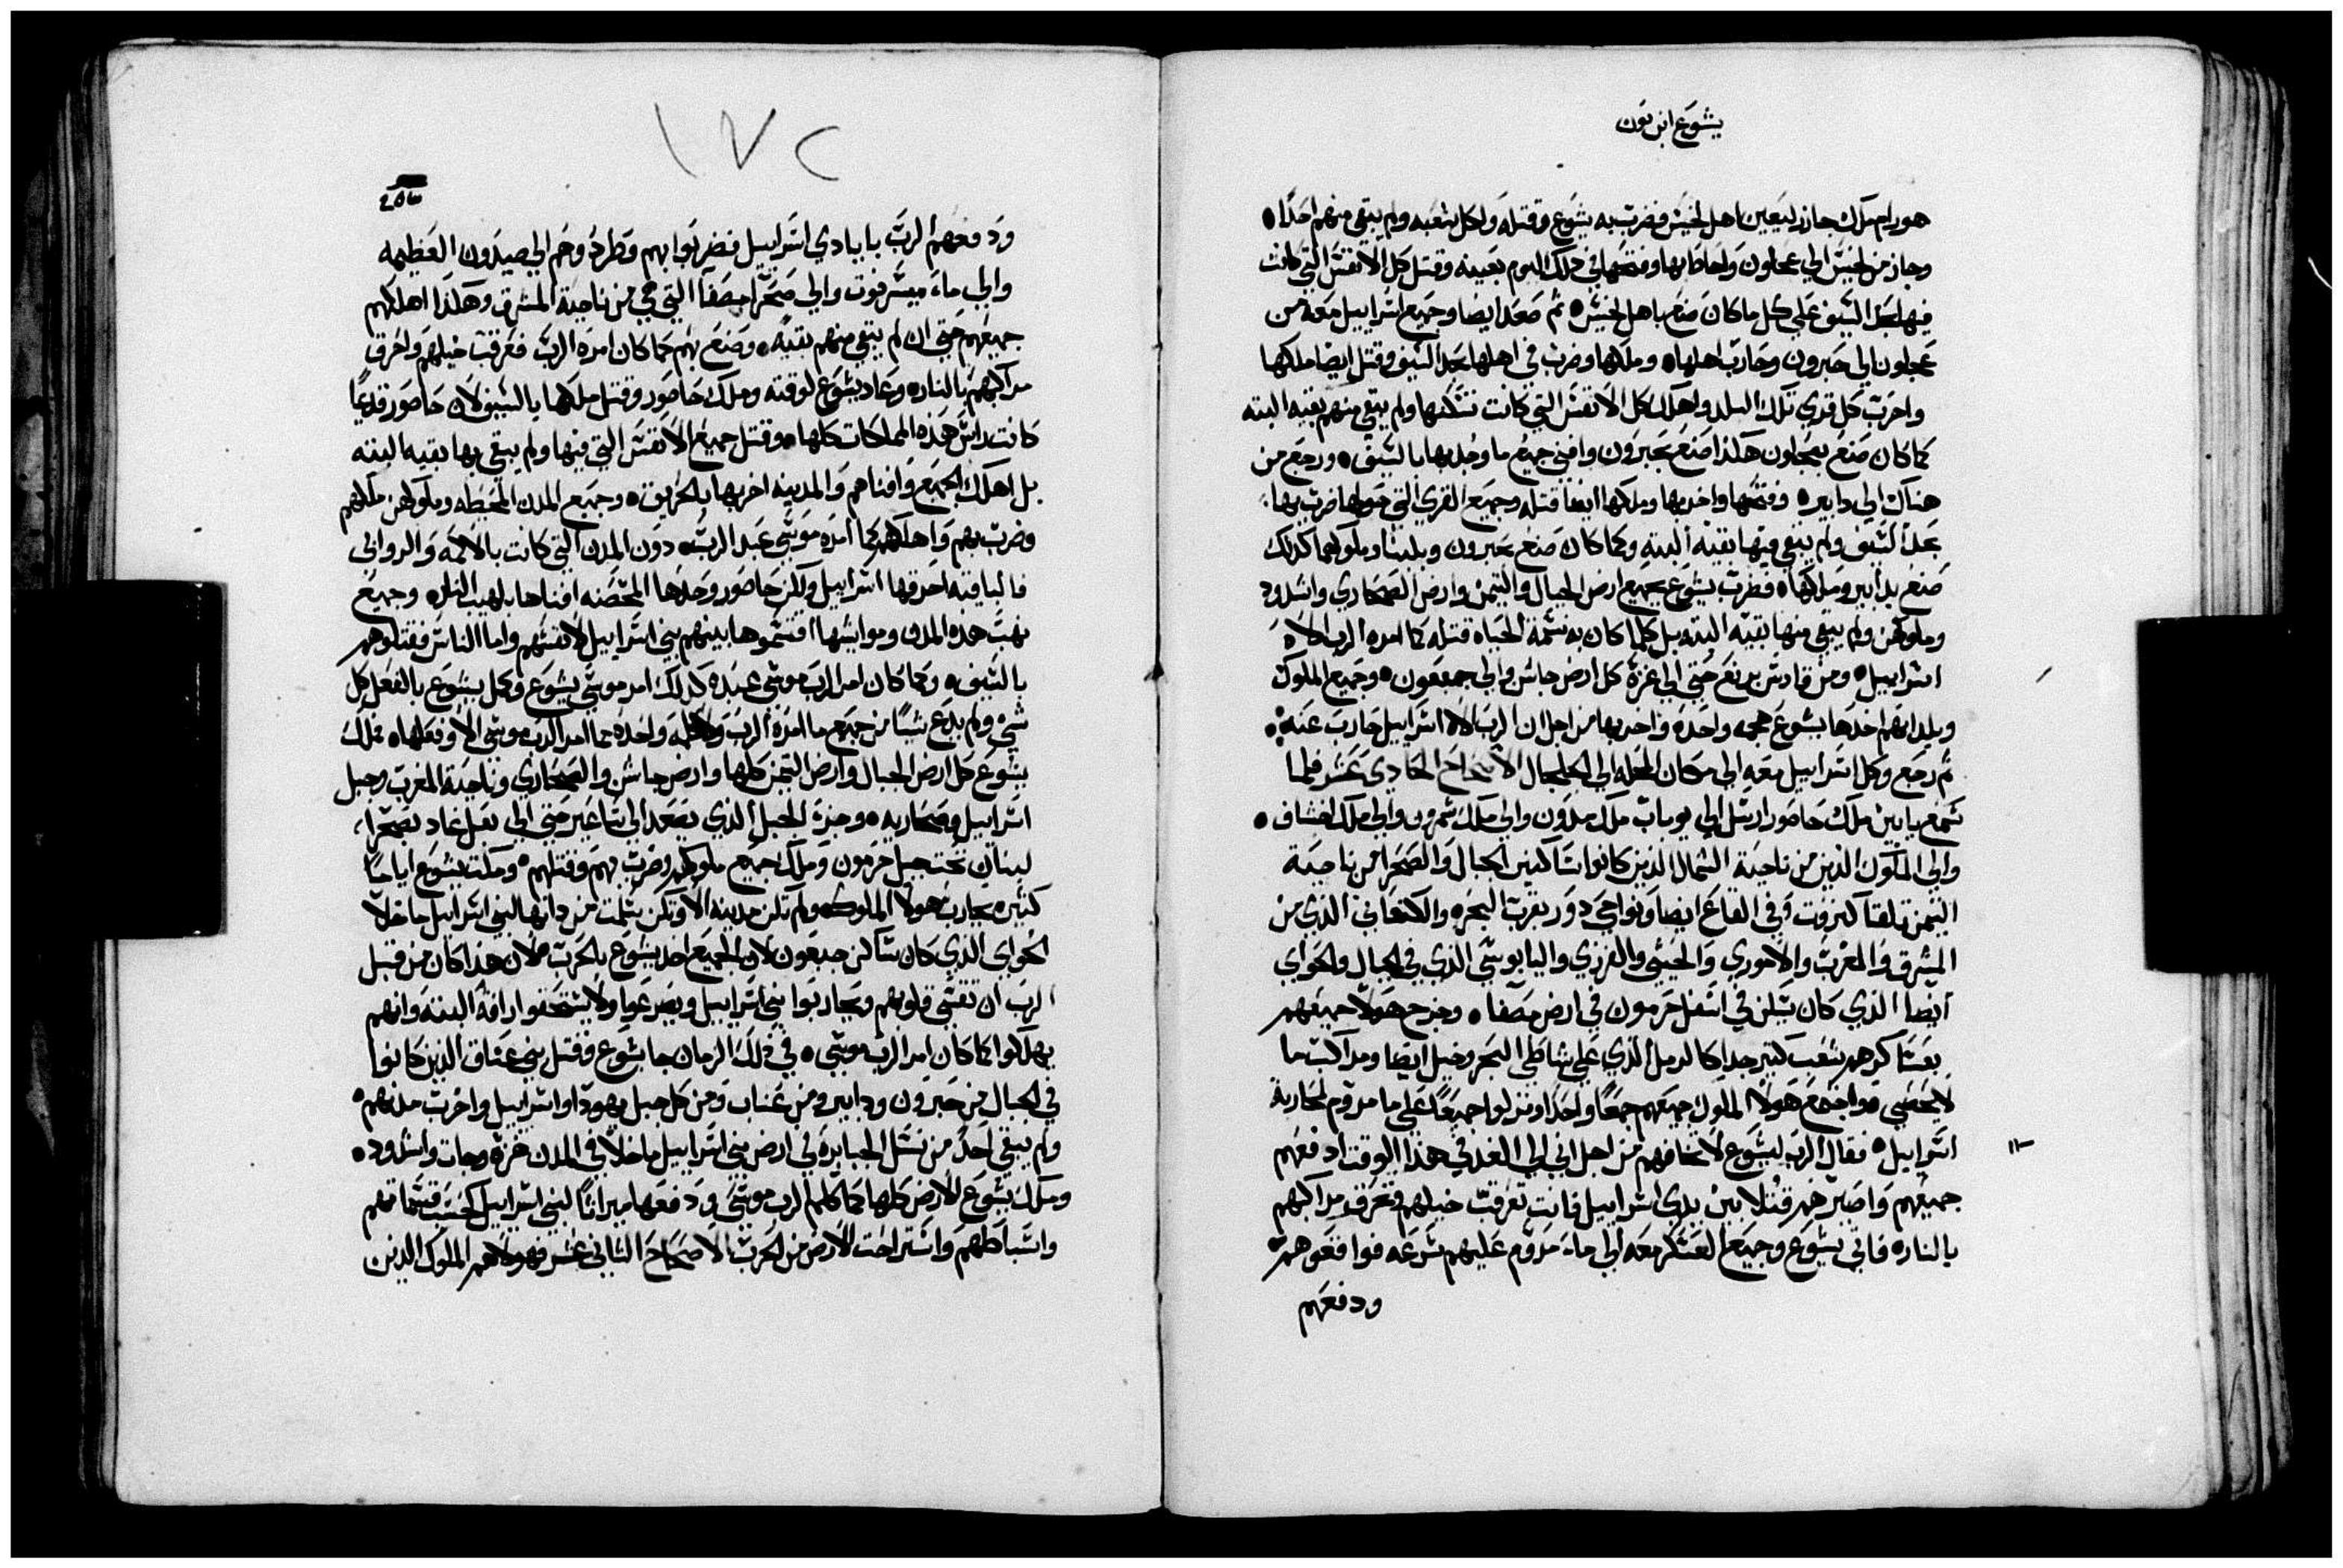 يشوع ابن نون
هورام ملك جازر ليعين اهل لخيش فضرب به يشوع وقتله وكل شعبه ولم يبقي منهم احدًا
وجاز من لخيش الي عجلون واحاط بها وفتحها في ذلك اليوم بعينه وقتل كل الانفس التي كانت
فيها بحد السيف علي كل ما كان صنع باهل لخيش ثم صعد ايضا وجميع اسراييل معه من
عجلون الي حبرون وحارب اهلها وملكها وضرب في اهلها بحد السيف وقتل ايضا ملكها
واخرب كل قري تلك البلد واهلك كل الانفس التي كانت تسكنها ولم يبقي منهم بقيه البته
كما كان صنع بعجلون هكذا صنع بحبرون وافني جميع ما وجد بها بالسيف ورجع من
هناك الي دابير وفتحها واخربها وملكها ايضا قتله وجميع القري التي حولها ضرب بها
بحد السيف ولم يبقي فيها بقيه البته وكما كان صنع بحبرون وبلبنا وملوكهما كذلك
صنع بدابير وملكها فضرب يشوع بجميع ارض الجبال والتيمن وارض الصحاري واشدود
وملوكهن ولم يبقي منها بقيه البته بل كلما كان به نسمة الحياه قتله كما امره الرب الاه
اسراييل ومن قادس برنع حتي الي غزة كل ارض جاشن والي جبعون وجميع الملوك
وبلدانهم اخدها يشوع هجمه واحده واخربها من اجل ان الرب الاه اسراييل حارب عنه
ثم رجع وكل اسراييل معه الي مكان المحله الي الجلجال الاصحاح الحادي عشر فلما
سمع يابين ملك حاصور ارسل الي يوباب ملك مدون والي ملك شمرون والي ملك اخشاف
والي الملوك الذين من ناحية الشمال الذين كانوا ساكنين الجبال والصحرا من ناحية
التيمن تلقا كنروت وفي القاع ايضا ونواحي دور بقرب البحره والكنعاني الذي من
المشرق والمغرب والاموري والحيثي والفرزي واليابوسي الذي في الجبال والحواي
ايضا الذي كان يسكن في اسفل حرمون في ارض مصفا وخرج هولا جميعهم
بعساكرهم بشعب كتير جدا كالرمل الذي علي شاطي البحر وخيل ايضا ومراكب ما
لا يحصي واجتمع هولا الملوك جميعهم جمعًا واحدا ونزلوا جميعًا علي ما مروم لمحاربة
اسراييل فقال الرب ليشوع لا تخافهم من اجل اني الي الغد في هذا الوقت ادفعهم
جميعهم واصيرهم قتلا بين يدي اسراييل فانت تعرقب خيلهم وتحرق مراكبهم
بالنار فاتي يشوع وجميع العسكر معه الي ماء مروم عليهم بسرعه فواقعوهم
ودفعهم
١٧٢
ودفعهم الرب بايادي اسراييل فضربوا بهم وطردوهم الي صيدون العظيمه
والي ماء ميسرفوت والي صحرا مصفا التي هي من ناحية المشرق وهكذا اهلكهم
جميعهم حتي ان لم يبقي منهم بقيه وصنع بهم كما كان امره الرب فعرقب خيلهم واحرق
مراكبهم بالنار وعاد يشوع لوقته وملك حاصور وقتل ملكها بالسيف لان حاصور قديمًا
كانت راس هذه المملكات كلها وقتل جميع الانفس التي فيها ولم يبقي بها بقيه البته
بل اهلك الجميع وافناهم والمدينه اخربها بالحريق وجميع المدن المحيطه وملوكهن ملكهم
وضرب بهم واهلكهم كما امره موسي عبد الرب دون المدن التي كانت بالاكمه والروابي
فالباقيه احرقها اسراييل ولكن حاصور وحدها المحصنه افناها بلهيب النار وجميع
نهب هذه المدن ومواشيها اقتسموها بينهم بني اسراييل لانفسهم واما الناس فقتلوهم
بالسيف وكما كان امر الرب موسي عبده كذلك امر موسي يشوع وكمل يشوع بالفعل كل
شي ولم يدع شيًا من جميع ما امره الرب ولا كلمه واحده مما امر الرب موسي الا وفعلها فملك
يشوع كل ارض الجبال وارض التيمن كلها وارض جاشن والصحاري وناحية المغرب وجبل
اسراييل وصحاريه وجزة الجبل الذي يصعد الي ساعير حتي الي بعل غاد بصحرا
لبنان تحت جبل حرمون وملك جميع ملوكهم وضرب بهم وقتلهم ومكت يشوع اياما
كتيره يحارب هولا الملوك ولم تكن مدينه الا وتكن سلمت من داتها لبني اسراييل ما خلا
الحواي الذي كان ساكن جبعون لان الجميع اخد يشوع بالحرب لان هذا كان من قبل
الرب ان تقسي قلوبهم ويحاربوا بني اسراييل ويصرعوا ولا يستحقوا رافة البته وانهم
يهلكوا كما كان امر الرب موسي في ذلك الزمان جا يشوع وقتل بني عناق الذين كانوا
في الجبال من حبرون ودابير ومن عناب ومن كل جبل يهودا واسراييل واخرب مدنهم
ولم يبقي احد من نسل الجبابره في ارض بني اسراييل ما خلا في المدن غزة وجات واشدود
وملك يشوع الارض كلها كما كلم الرب موسي ودفعها ميراثًا لبني اسراييل كحسب قسماتهم
واسباطهم واستراحت الارض من الحرب الاصحاح التاني عشر فهولاهم الملوك الذين